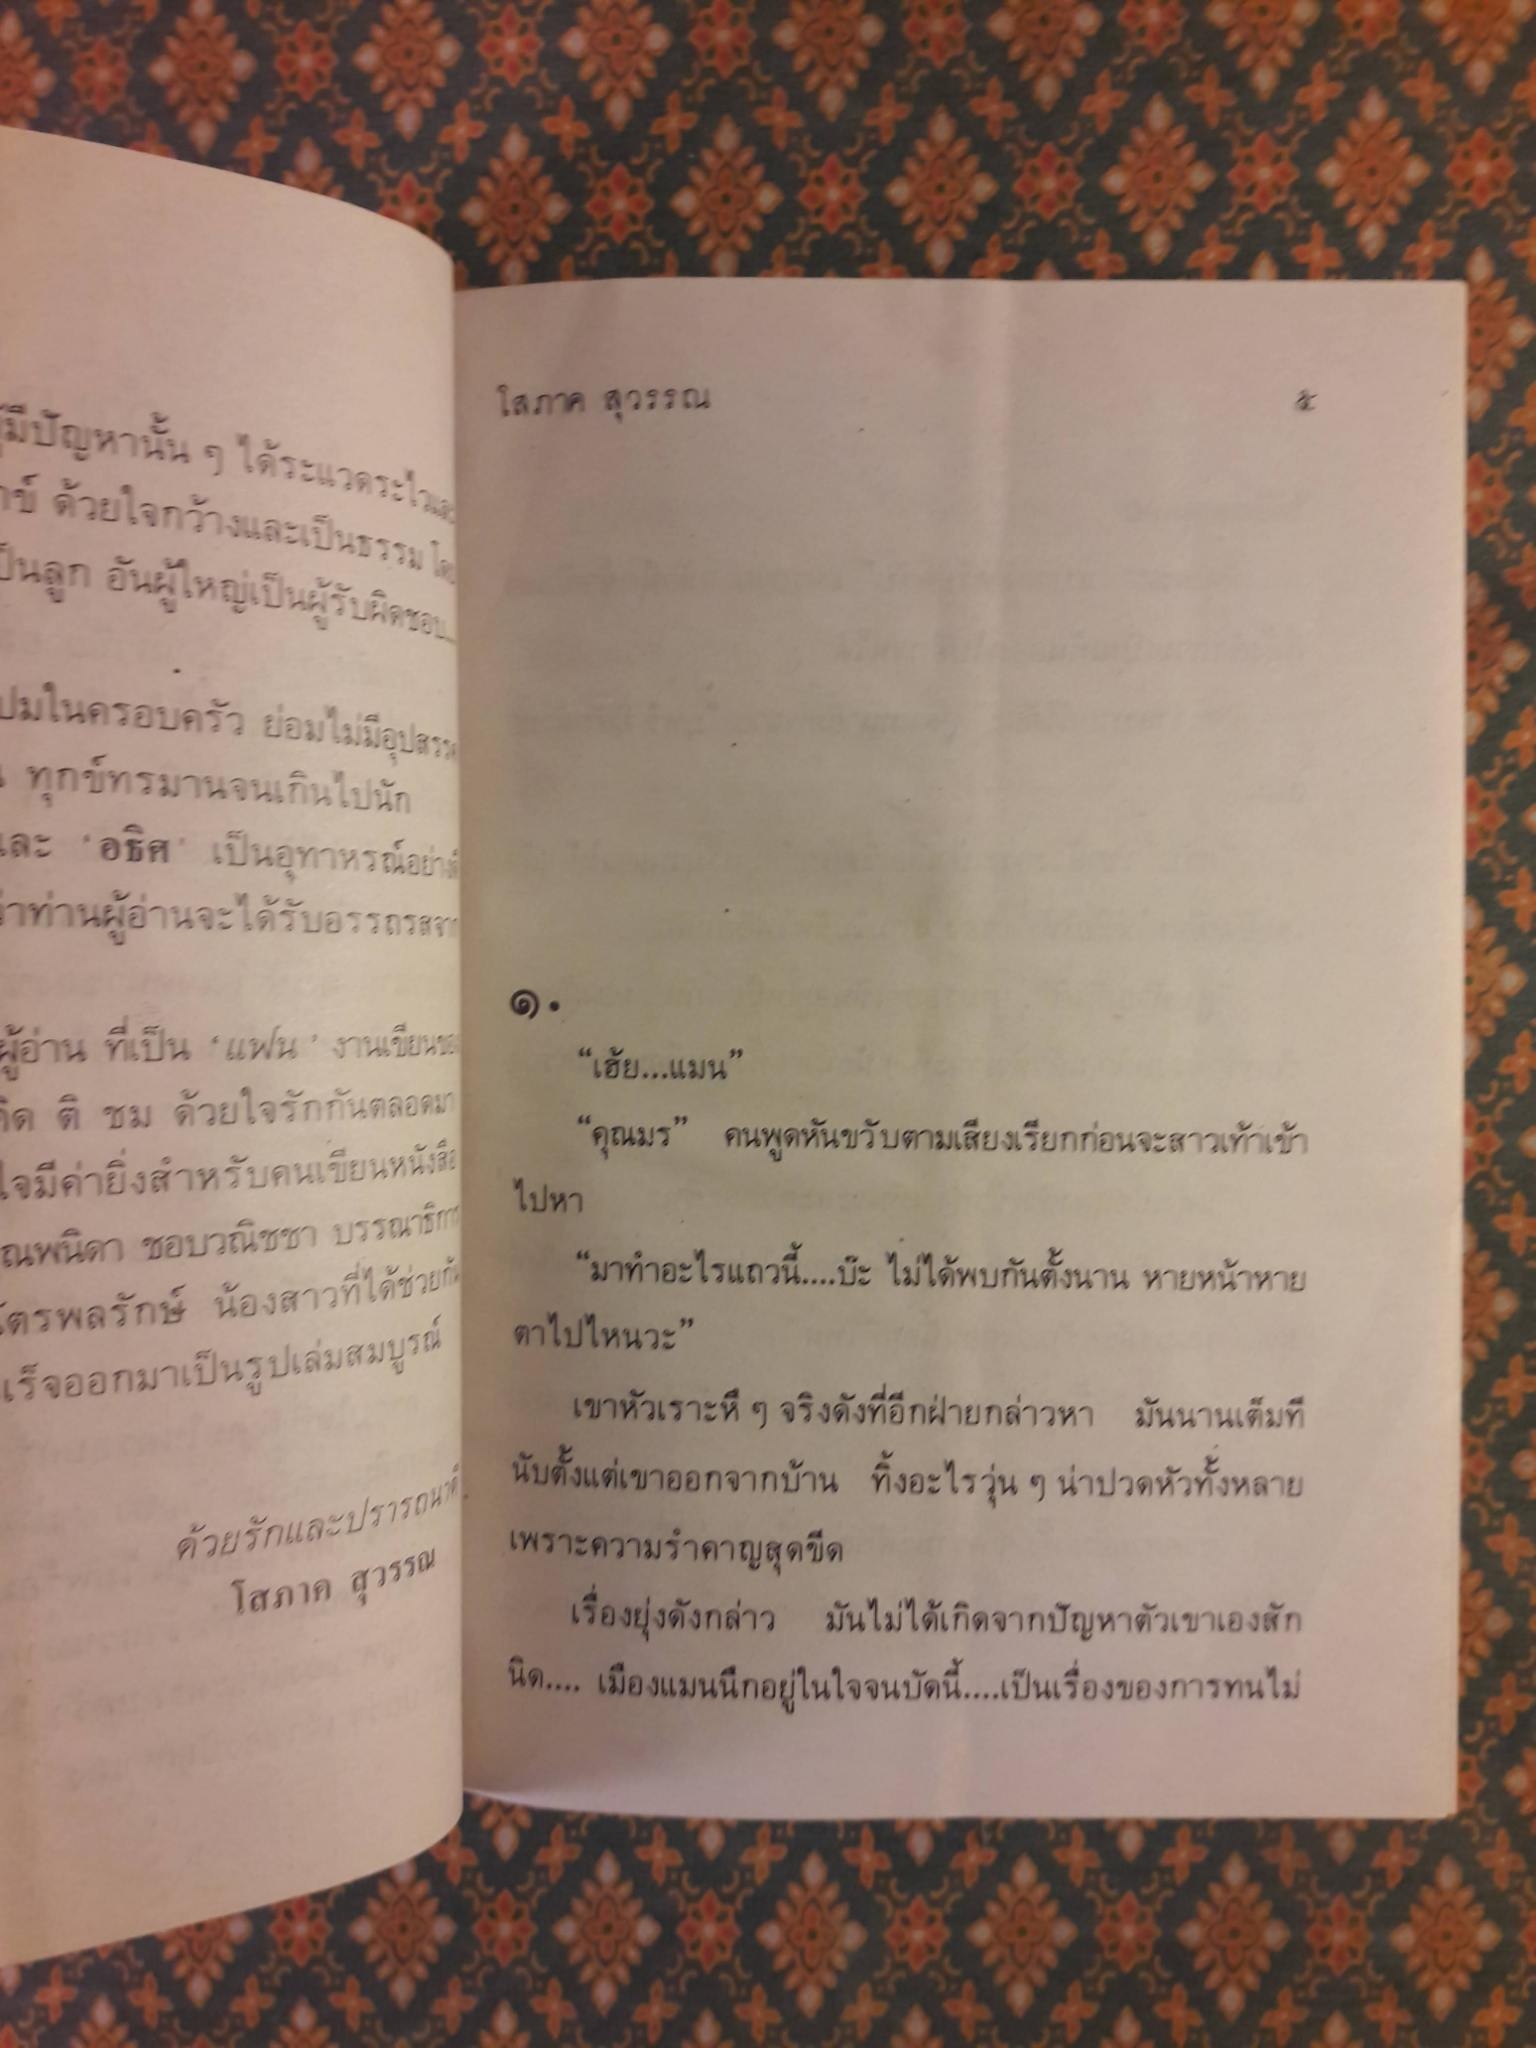 มีปัญหานั้น ๆ ได้ระแวดระไวและ
ด้วยใจกว้างและเป็นธรรม โดย
เป็นลูก อันผู้ใหญ่เป็นผู้รับผิดชอบ....
ปมในครอบครัว ย่อมไม่มีอุปสรรค
ทุกข์ทรมานจนเกินไปนัก
และ 'อธิศ' เป็นอุทาหรณ์อย่าง
ว่าท่านผู้อ่านจะได้รับอรรถรสจาก
ผู้อ่าน ที่เป็น 'แฟน' งานเขียนของ
ติ ชม ด้วยใจรักกันตลอดมา
ใจมีค่ายิ่งสำหรับคนเขียนหนังสือ
คุณพนิดา ชอบวณิชชา บรรณาธิการ
น้องสาวที่ได้ช่วยกัน
เร็จออกมาเป็นรูปเล่มสมบูรณ์
ด้วยรักและปรารถนาดี
โสภาค สุวรรณ
โสภาค สุวรรณ ๕
๑.
“เฮ้ย...แมน”
“คุณมร” คนพูดหันขวับตามเสียงเรียกก่อนจะสาวเท้าเข้า
ไปหา
“มาทำอะไรแถวนี้....บ๊ะ ไม่ได้พบกันตั้งนาน หายหน้าหาย
ตาไปไหนวะ”
เขาหัวเราะหึ ๆ จริงดังที่อีกฝ่ายกล่าวหา มันนานเต็มที
นับตั้งแต่เขาออกจากบ้าน ทิ้งอะไรวุ่น ๆ น่าปวดหัวทั้งหลาย
เพราะความรำคาญสุดขีด
เรื่องยุ่งดังกล่าว มันไม่ได้เกิดจากปัญหาตัวเขาเองสัก
นิด.... เมืองแมนนึกอยู่ในใจจนบัดนี้....เป็นเรื่องของการทนไม่